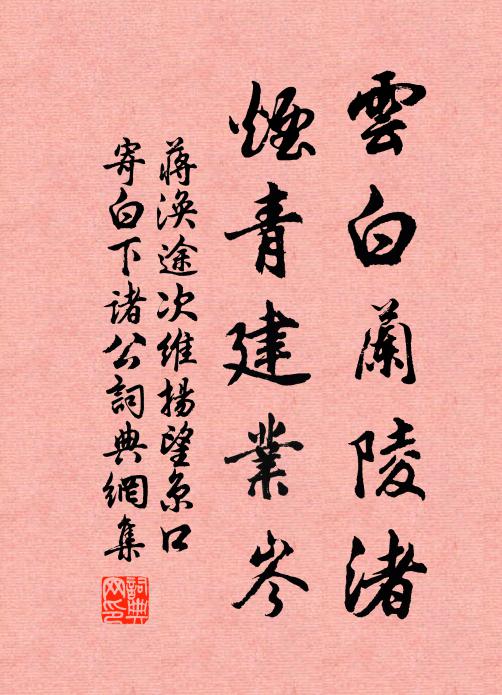 雲白蘭陵渚
煙青建業岑
蔣渙途次維揚望京口
寄白下諸公詞典網集
詞典
网印